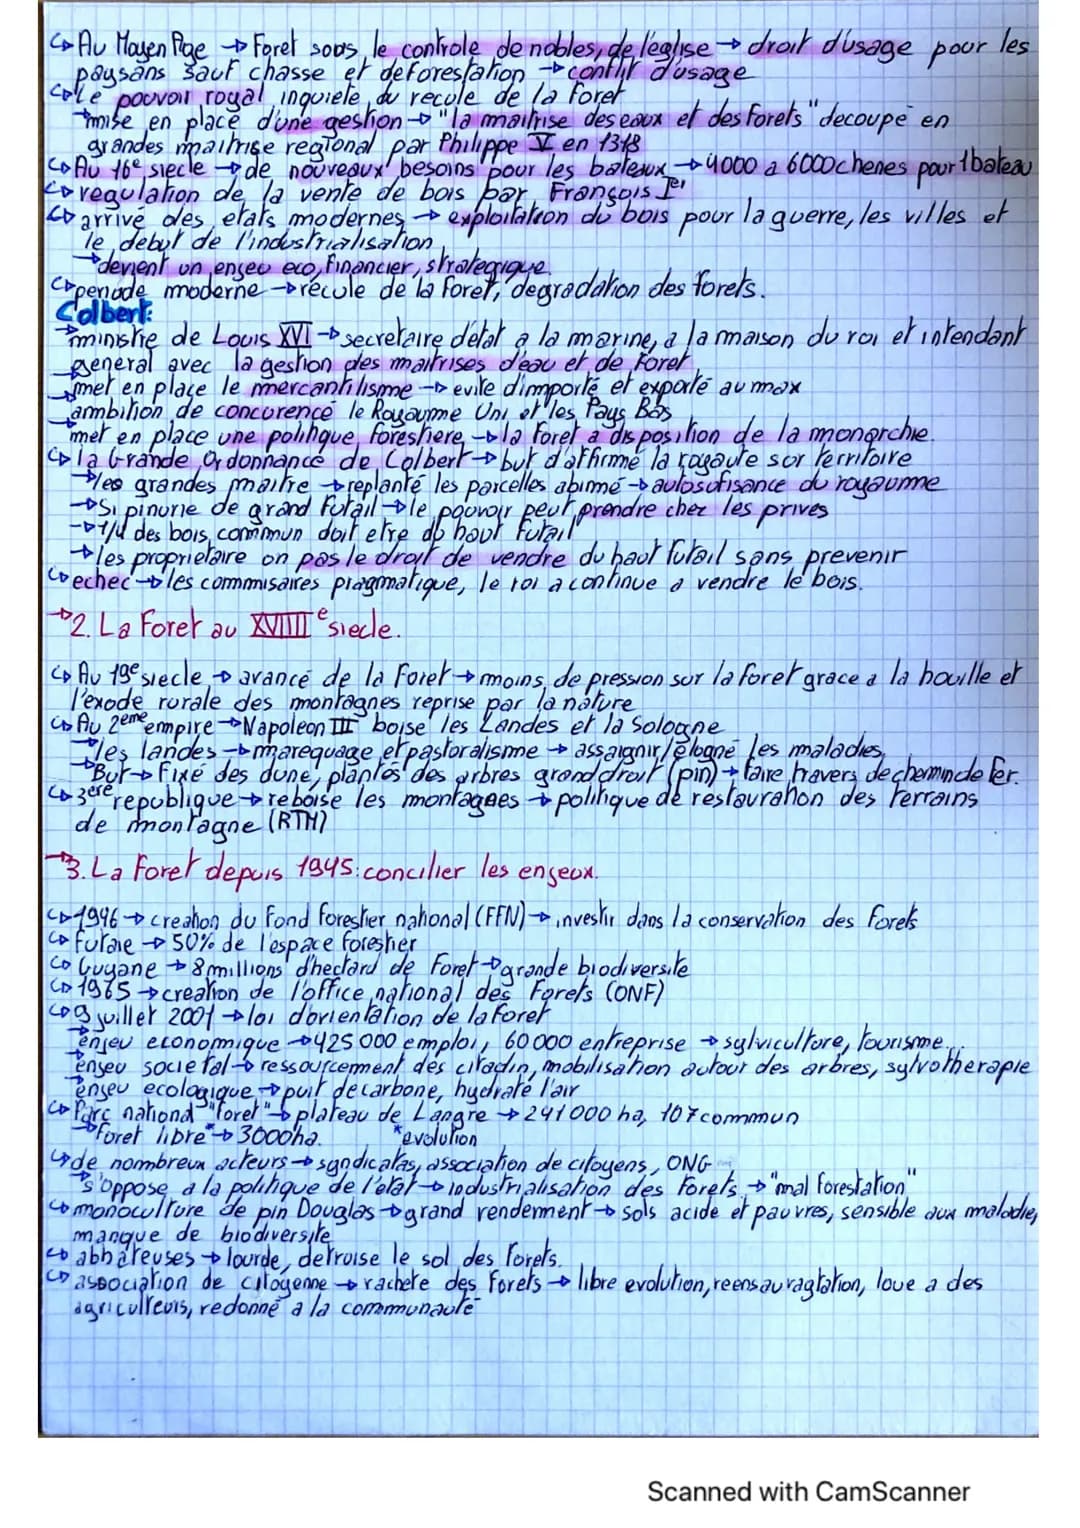 ↳ Au Moyen Age → Foret sous le controle de nobles, de l'eglise → droit d'usage pour les
paysans sauf chasse et deforestation → conflit d'usage
↳ Le pouvoir royal inquiete du recule de la foret
→ mise en place d'une gestion → "la maitrise des eaux et des forets" decoupe en
grandes maitrise regional par Philippe V en 1318
↳ Au 16e siecle → de nouveaux besoins pour les bateaux → 4000 a 6000 chenes pour 1 bateau
↳ regulation de la vente de bois par François Ier
↳ arrivé des etats modernes → exploitation du bois pour la guerre, les villes et
le debut de l'industrialisation
→ devient un enjeu eco, financier, strategique.
↳ periode moderne → recule de la foret, degradation des forets.
Colbert:
→ ministre de Louis XVI → secretaire d'etat a la marine, a la maison du roi et intendant
general avec la gestion des maitrises d'eau et de foret
→ met en place le mercantilisme → evite d'importé et exporté au max
→ ambition de concurencé le Royaume Uni et les Pays Bas
→ met en place une politique forestiere → la foret a disposition de la monarchie.
↳ la Grande Ordonnance de Colbert → but d'affirmé la royauté sur territoire
→ les grandes maitre → replanté les parcelles abimé → autosufisance du royaumme
→ Si pinurie de grand futail → le pouvoir peut prendre chez les prives
→ 1/4 des bois commun doit etre dp haut futail
→ les proprietaire on pas le droit de vendre du haut futail sans prevenir
↳ echec → les commmisaires pragmatique, le roi a continue a vendre le bois.
→ 2. La Foret au XVIIII e siecle.
↳ Au 19e siecle → avancé de la Foret → moins de pression sur la foret grace a la houille et
l'exode rurale des montagnes reprise par la nature
↳ Au 2eme empire → Napoleon III boise les Landes et la Sologne
→ les landes → marequage et pastoralisme → assaignir/elogné les malades
→ But → Fixé des dune, plantés des arbres grand droit (pin) → faire travers de chemin de fer.
↳ 3ere republique → reboise les montagnes → politique de restauration des terrains
de montagne (RTM)
→ 3. La Foret depuis 1945: concilier les enjeux.
↳ 1946 → creation du Fond forestier national (FFN) → investir dans la conservation des Forets
↳ futaie → 50% de l'espace forestier
↳ Guyane → 8 millions d'hectard de Foret → grande biodiversite
↳ 1965 → creation de l'office national des Forets (ONF)
↳ 9 juillet 2001 → loi d'orientation de la foret
→ enjeu economique → 425 000 emploi, 60 000 entreprise → sylviculture, tourisme...
→ enjeu societal → ressourcement des citadin, mobilisation autour des arbres, sylvotherapie
→ enjeu ecologique → puit de carbone, hydraté l'air
↳ Parc national "foret" → plateau de Langre → 241 000 ha, 107 commun
→ foret libre* → 3000ha. *evolution
↳ de nombreux acteurs → syndicatas, association de citoyens, ONG
→ s'oppose a la politique de l'etat → industrialisation des forets → "mal forestation"
↳ monoculture de pin Douglas → grand renderment → sols acide et pauvres, sensible aux maladie,
manque de biodiversite
↳ abbateuses → lourde, detruise le sol des forets.
↳ association de citoyenne → rachete des forets → libre evolution, reensauvagtation, loue a des
agriculteurs, redonné a la communauté
Scanned with CamScanner